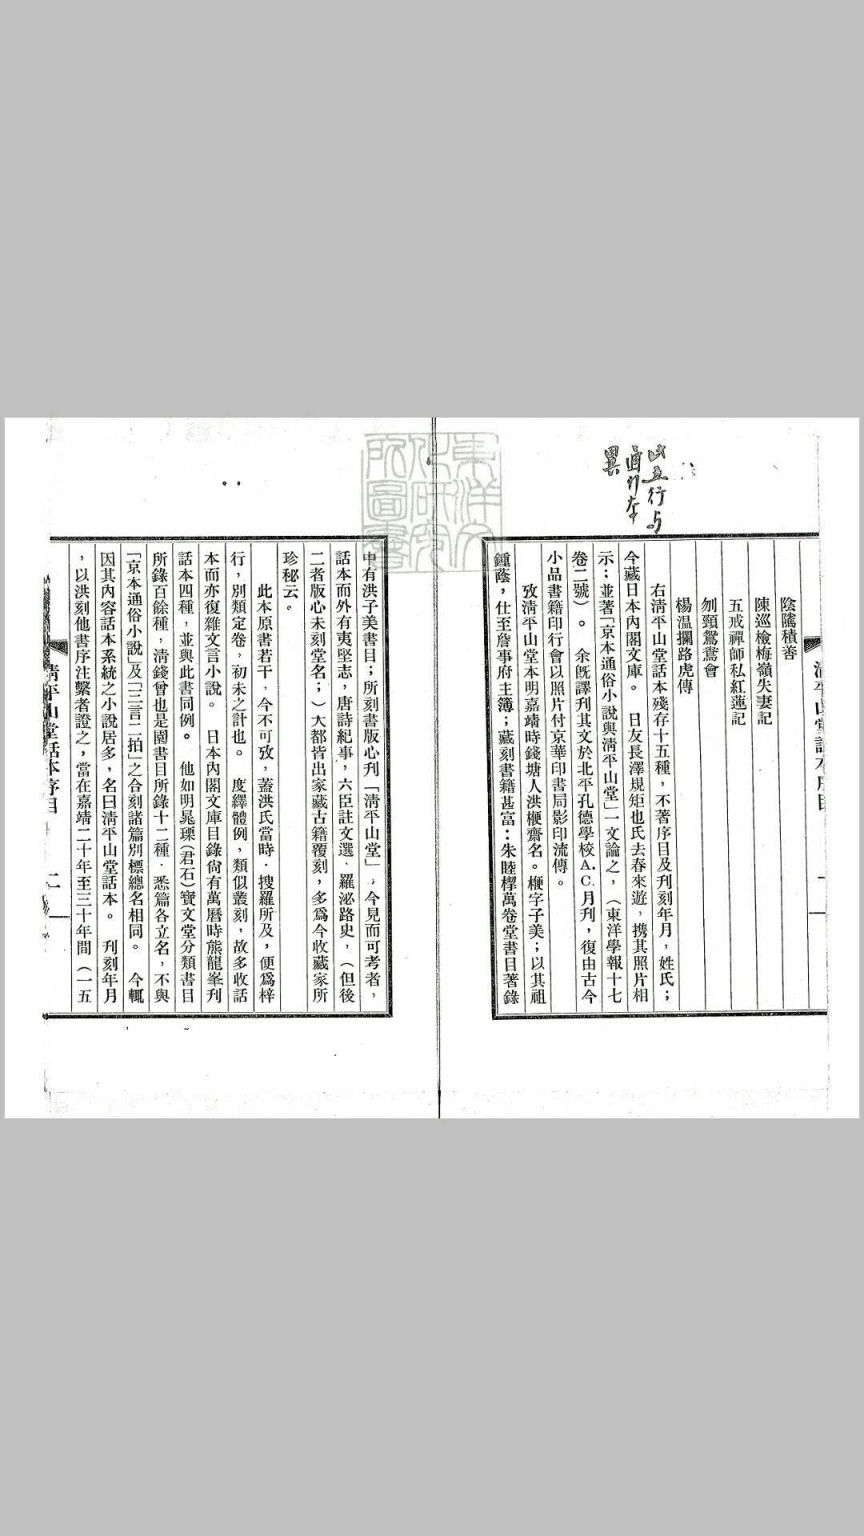 陰隲積善
陳巡檢梅嶺失妻記
五戒禪師私紅蓮記
刎頸鴛鴦會
楊温攔路虎傳
右清平山堂話本殘存十五種，不著序目及刊刻年月，姓氏；
今藏日本內閣文庫。日友長澤規矩也氏去春來遊，携其照片相
示：並著「京本通俗小說與清平山堂」一文論之，（東洋學報十七
卷二號）。余旣譯刊其文於北平孔德學校A.C.月刊，復由古今
小品書籍印行會以照片付京華印書局影印流傳。
攷清平山堂本明嘉靖時錢塘人洪楩齋名。楩字子美；以其祖
鍾蔭，仕至詹事府主簿；藏刻書籍甚富：朱睦㮮萬卷堂書目著錄
中有洪子美書目；所刻書版心刋「清平山堂」，今見而可考者，
話本而外有夷堅志，唐詩紀事，六臣註文選，羅泌路史，（但後
二者版心未刻堂名；）大都皆出家藏古籍覆刻，多爲今收藏家所
珍秘云。
此本原書若干，今不可攷，蓋洪氏當時，搜羅所及，便爲梓
行，別類定卷，初未之計也。度繹體例，類似叢刻，故多收話
本而亦復雜文言小說。日本內閣文庫目錄尙有萬曆時熊龍峯刋
話本四種，並與此書同例。他如明晁瑮（君石）寶文堂分類書目
所錄百餘種，清錢曾也是園書目所錄十二種，悉篇各立名，不與
「京本通俗小說」及「三言二拍」之合刻諸篇別標總名相同。今輒
因其內容話本系統之小說居多，名曰清平山堂話本。刋刻年月
，以洪刻他書序注繫者證之，當在嘉靖二十年至三十年間（一五
清平山堂話本序目
二